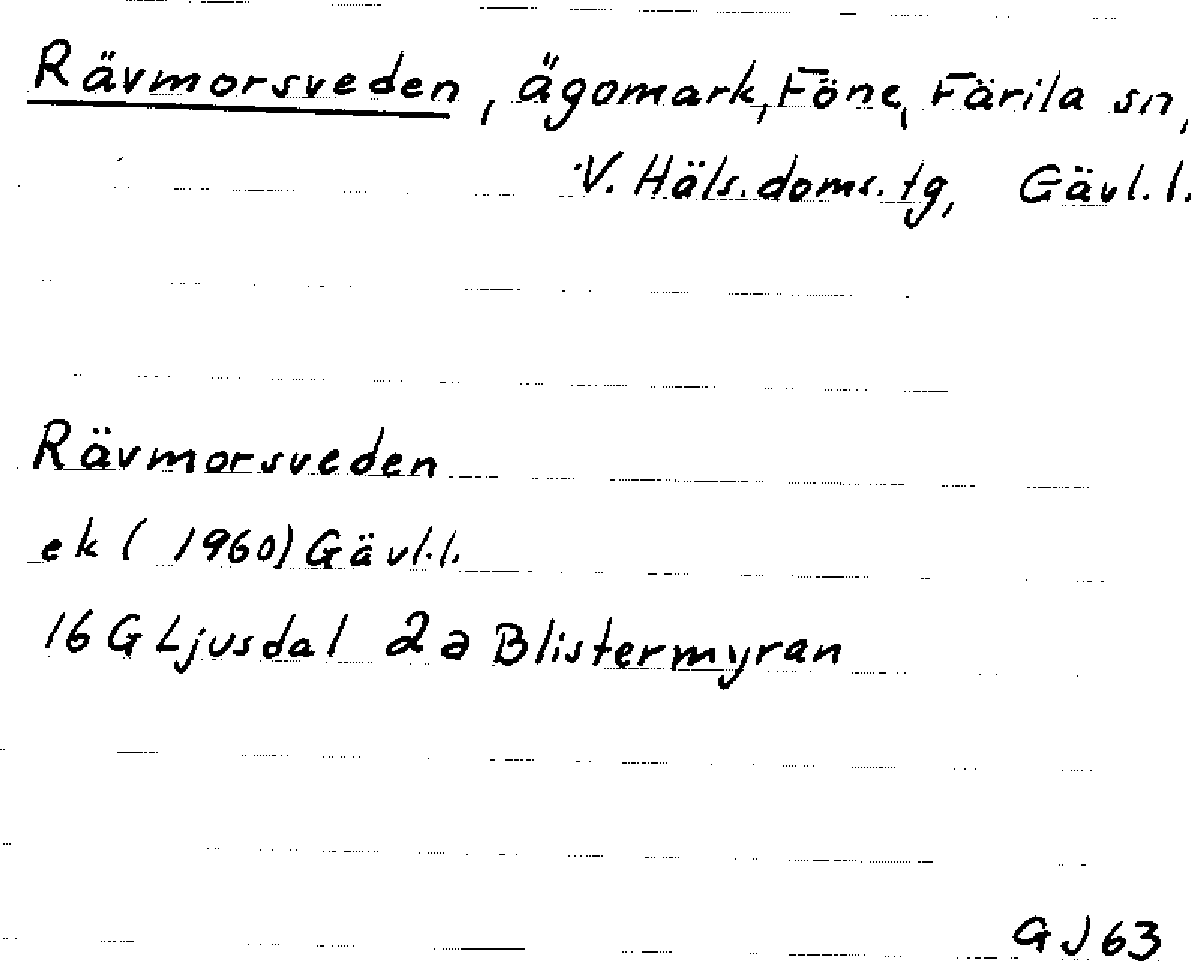 Rävmorsveden, ägomark, Föne, Färila sn,
V. Häls. doms. tg, Gävl. l.
Rävmorsveden
ek (1960) Gävl. l.
16 G Ljusdal 2a Blistermyran
GJ 63